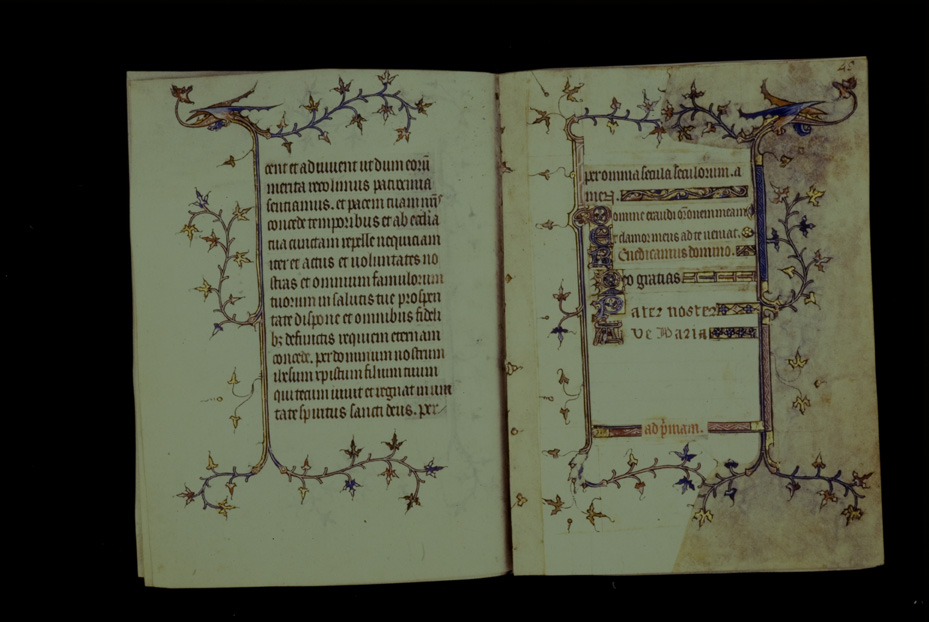 cent et aduuent ut dum eorū
merita recolimus patrocinia
sentiamus. et pacem tuam nrīs
concede temporibus et ab ecclia
tua cunctam repelle nequiciam
iter et actus et uoluntates no
stras et omnium famulorum
tuorum in salutis tue prosperi
tate dispone et omnibus fideli
bȝ defunctis requiem eternam
concede. per dominum nostrum
ihesum xpistum filium tuum
qui tecum uiuit et regnat in uni
tate spiritus sancti deus. per
per omnia secula seculorum. a
men.
Domine exaudi orōnem meam
Et clamor meus ad te ueniat.
Benedicamus domino.
Deo gratias
Pater noster
Aue Maria
ad pͥmam.